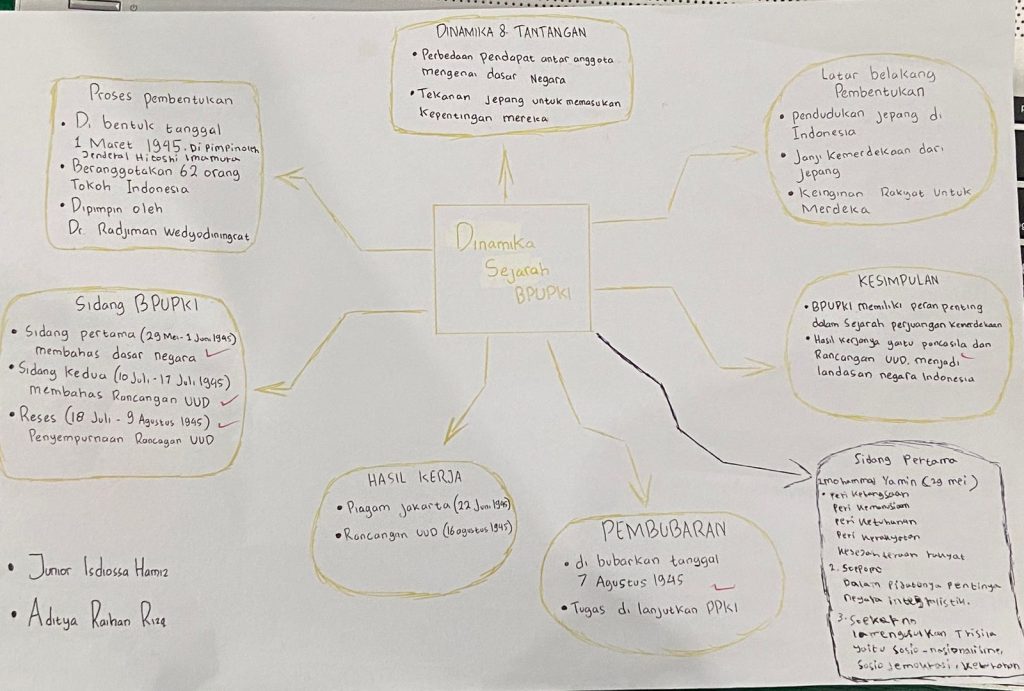 DINAMIKA & TANTANGAN
• Perbedaan pendapat antar anggota
mengenai dasar Negara
• Tekanan Jepang untuk memasukan
Kepentingan mereka
Proses pembentukan
• Di bentuk tanggal
1 Maret 1945. Di Pimpin oleh
Jenderal Hitoshi Imamura
• Beranggotakan 62 orang
Tokoh Indonesia
• Dipimpin oleh
Dr. Radjiman Wedyodiningrat
Latar belakang
Pembentukan
• pendudukan jepang di
Indonesia
• Janji Kemerdekaan dari
Jepang
• Keinginan Rakyat untuk
Merdeka
Dinamika
Sejarah
BPUPKI
Sidang BPUPKI
• Sidang pertama (29 Mei - 1 Juni 1945)
membahas dasar negara
• Sidang Kedua (10 Juli - 17 Juli 1945)
membahas Rancangan UUD
• Reses (18 Juli - 9 Agustus 1945)
Penyempurnaan Rancagan UUD
KESIMPULAN
• BPUPKI memiliki peran penting
dalam Sejarah perjuangan Kemerdekaan
• Hasil kerjanya yaitu pancasila dan
Rancangan UUD menjadi
landasan negara Indonesia
HASIL KERJA
• Piagam jakarta (22 Juni 1945)
• Rancangan UUD (16 agustus 1945)
PEMBUBARAN
• di bubarkan tanggal
7 Agustus 1945
• Tugas di lanjutkan PPKI
Sidang Pertama
1. mohammad Yamin (29 mei)
• Peri Kebangsaan
Peri Kemanusiaan
Peri Ketuhanan
Peri Kerakyatan
Kesejahteraan rakyat
2. Soepopo
Dalam Pidatonya Pentinya
negara integralistik.
3. Soekarno
Ia mengusulkan Trisila
yaitu Sosio-nasionalisme,
Sosio demokrasi,
• Junior Isdiossa Hamiz
• Aditya Raihan Rizq